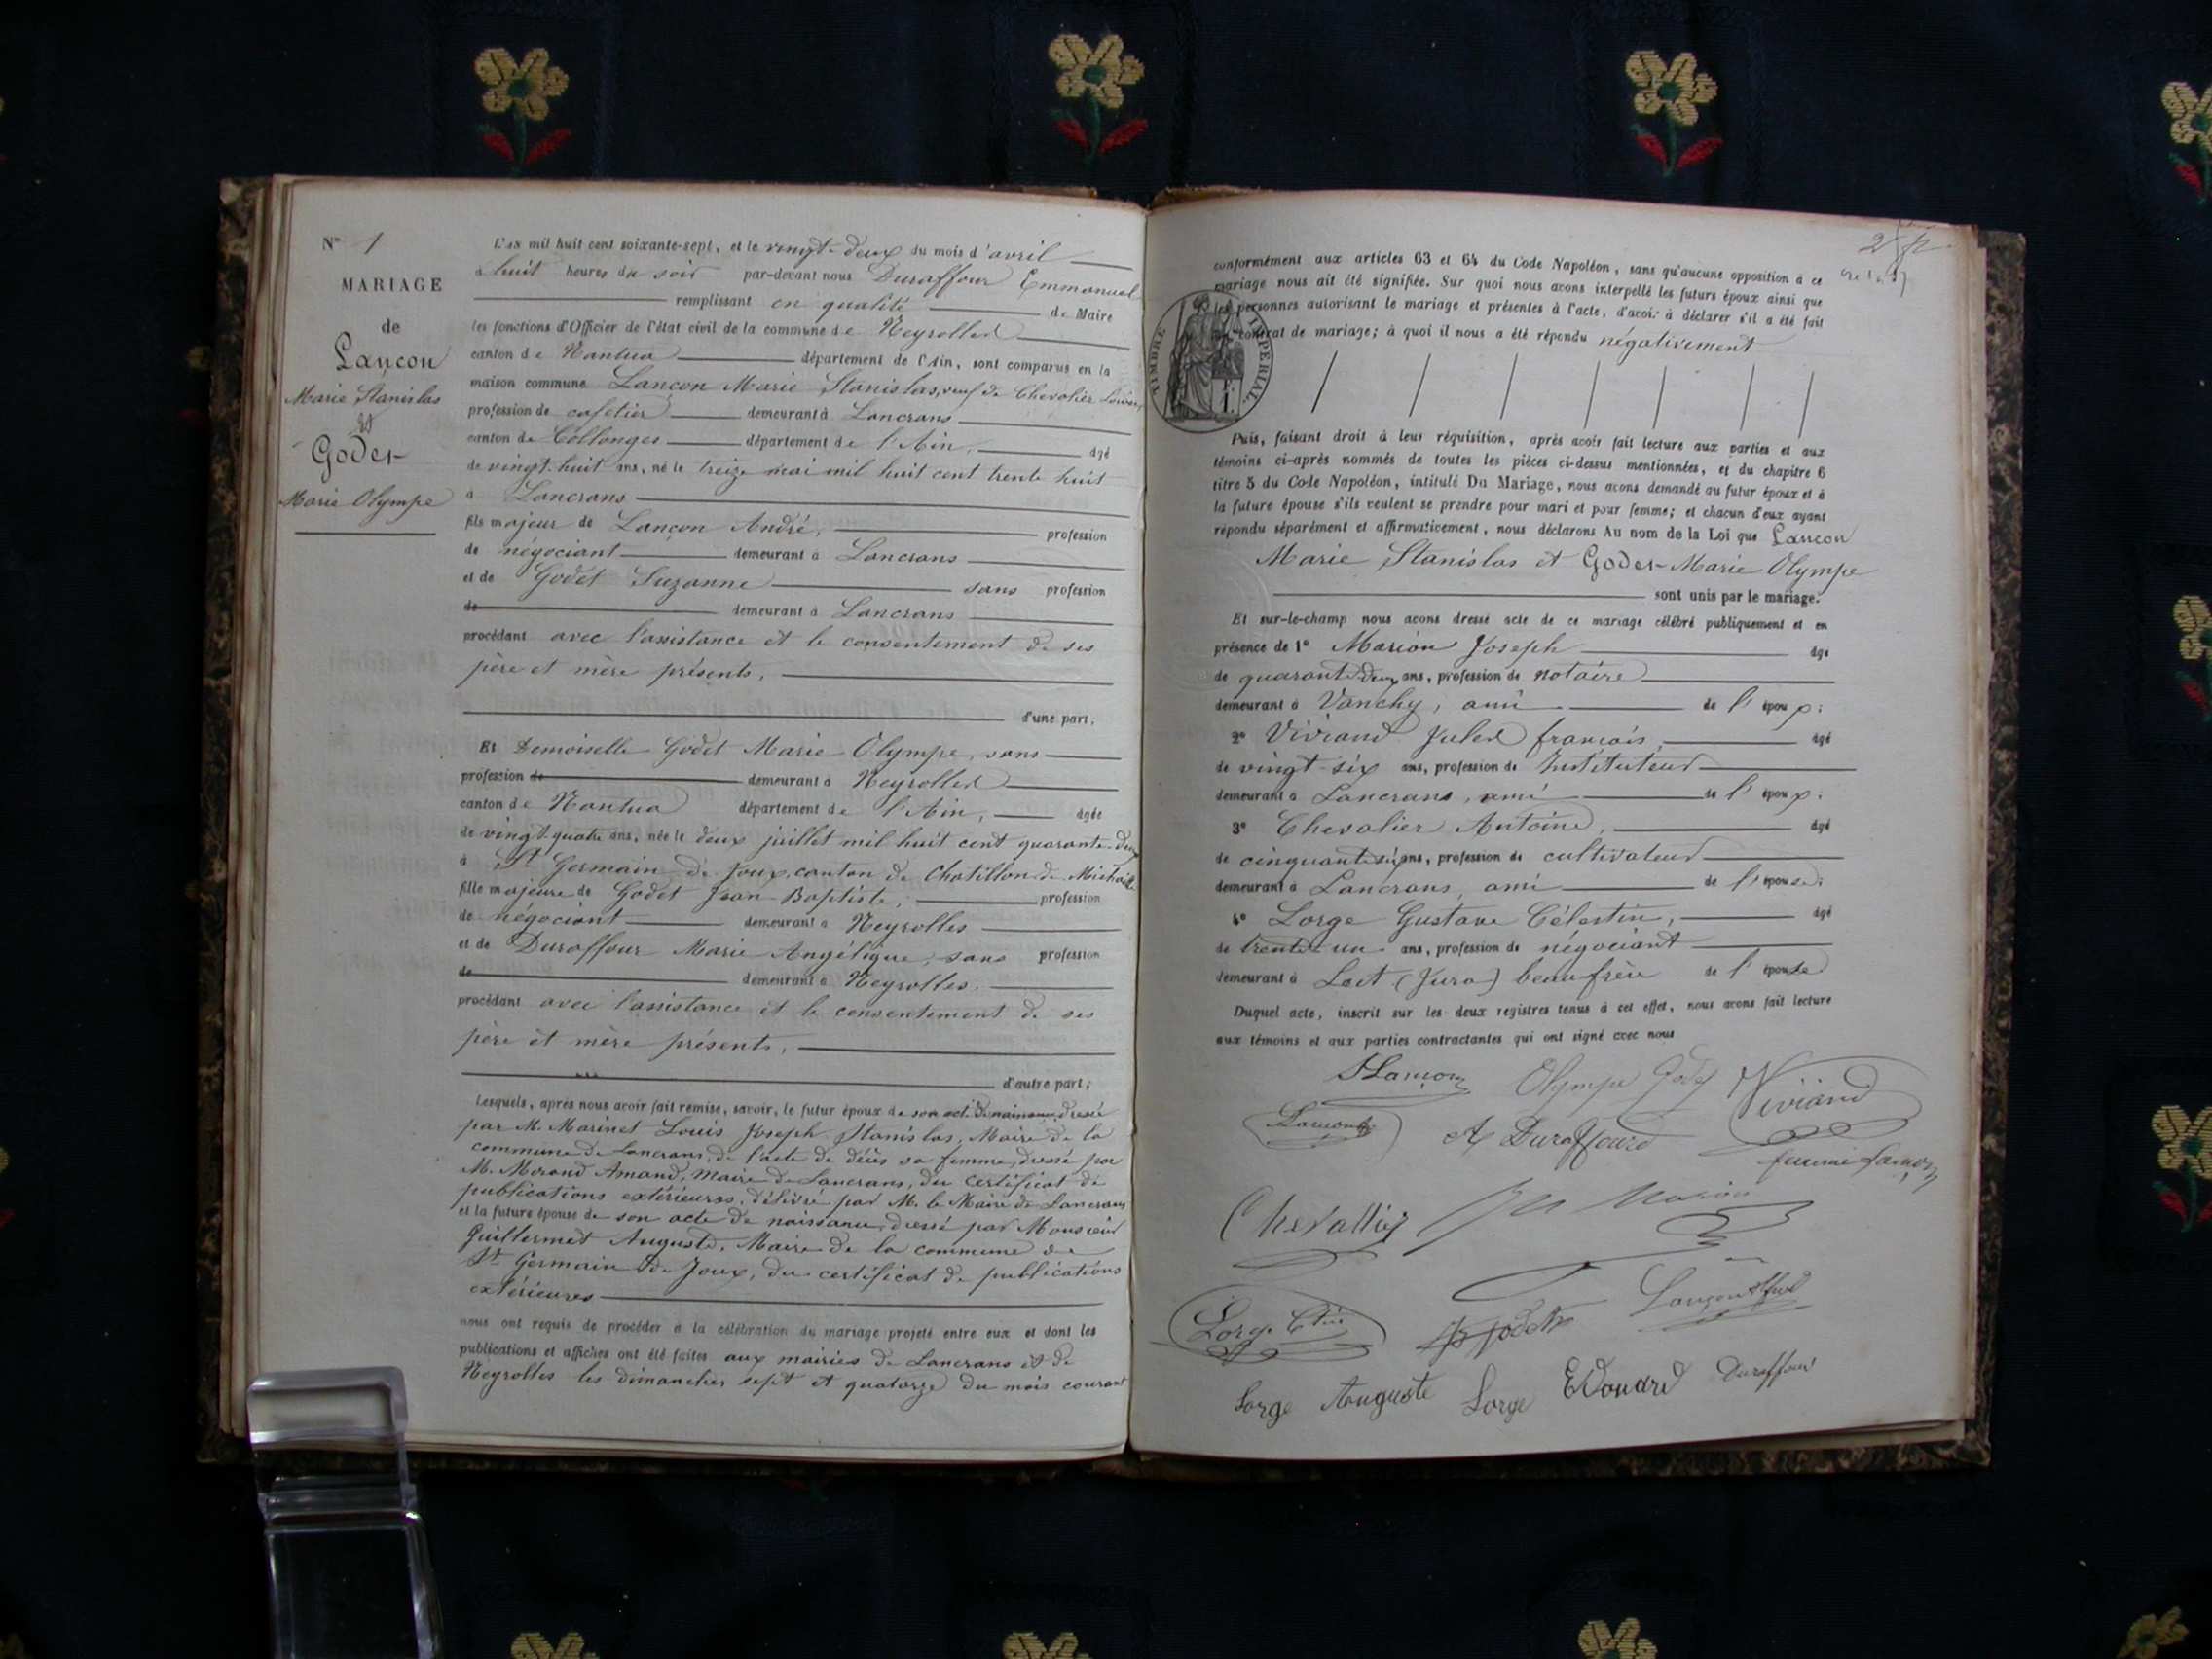 N° 1
MARIAGE
de
Lançon
Marie Stanislas
et
Godet
Marie Olympe
L'an mil huit cent soixante-sept, et le vingt-deux du mois d'avril
à huit heures du soir par-devant nous Duraffour Emmanuel
remplissant en qualité de Maire
les fonctions d'Officier de l'état civil de la commune de Neyrolles
canton de Nantua département de l'Ain, sont comparus en la
maison commune Lançon Marie Stanislas, veuf de Chevalier
profession de cafetier demeurant à Lancrans
canton de Collonges département de l'Ain, âgé
de vingt-huit ans, né le treize mai mil huit cent trente huit
à Lancrans
fils majeur de Lançon André, profession
de négociant demeurant à Lancrans
et de Godet Suzanne sans profession
de demeurant à Lancrans
procédant avec l'assistance et le consentement de ses
père et mère présents,
d'une part;
Et Demoiselle Godet Marie Olympe, sans
profession de demeurant à Neyrolles
canton de Nantua département de l'Ain, âgée
de vingt-quatre ans, née le deux juillet mil huit cent quarante-deux
à St Germain de Joux, canton de Chatillon de Michaille
fille majeure de Godet Jean-Baptiste, profession
de négociant demeurant à Neyrolles
et de Duraffour Marie Angélique, sans profession
de demeurant à Neyrolles.
procédant avec l'assistance et le consentement de ses
père et mère présents,
d'autre part;
Lesquels, après nous avoir fait remise, savoir, le futur époux de son acte de naissance, dressé
par M. Marinet Louis Joseph Stanislas, Maire de la
commune de Lancrans, de l'acte de décès sa femme, dressé par
M. Morand Amand, Maire de Lancrans, du certificat de
publications extérieures, délivré par M. le Maire de Lancrans
et la future épouse de son acte de naissance, dressé par Monsieur
Guillermet Auguste, Maire de la commune de
St Germain de Joux, du certificat de publications
extérieures
nous ont requis de procéder à la célébration du mariage projeté entre eux et dont les
publications et affiches ont été faites aux mairies de Lancrans et de
Neyrolles les dimanches sept et quatorze du mois courant
2
conformément aux articles 63 et 64 du Code Napoléon, sans qu'aucune opposition à ce
mariage nous ait été signifiée. Sur quoi nous avons interpellé les futurs époux ainsi que
les personnes autorisant le mariage et présentes à l'acte, d'avoir à déclarer s'il a été fait
un contrat de mariage; à quoi il nous a été répondu négativement
TIMBRE IMPERIAL
Puis, faisant droit à leur réquisition, après avoir fait lecture aux parties et aux
témoins ci-après nommés de toutes les pièces ci-dessus mentionnées, et du chapitre 6
titre 5 du Code Napoléon, intitulé Du Mariage, nous avons demandé au futur époux et à
la future épouse s'ils veulent se prendre pour mari et pour femme; et chacun d'eux ayant
répondu séparément et affirmativement, nous déclarons Au nom de la Loi que Lançon
Marie Stanislas et Godet Marie Olympe
sont unis par le mariage.
Et sur-le-champ nous avons dressé acte de ce mariage célébré publiquement et en
présence de 1° Marion Joseph âgé
de quarante-deux ans, profession de notaire
demeurant à Vanchy, ami de l'époux;
2° Viviand Jules françois, âgé
de vingt-six ans, profession de Instituteur
demeurant à Lancrans, ami de l'époux;
3° Chevalier Antoine, âgé
de cinquante-six ans, profession de cultivateur
demeurant à Lancrans, ami de l'épouse;
4° Lorge Gustave Célestin, âgé
de trente-un ans, profession de négociant
demeurant à Lect (Jura) beau-frère de l'épouse
Duquel acte, inscrit sur les deux registres tenus à cet effet, nous avons fait lecture
aux témoins et aux parties contractantes qui ont signé avec nous
SLançon Olympe Godet Viviand
A Duraffourd
Lançon
Chevallier Marion
Lorge
Godet
Lorge Auguste Lorge Edouard Duraffour